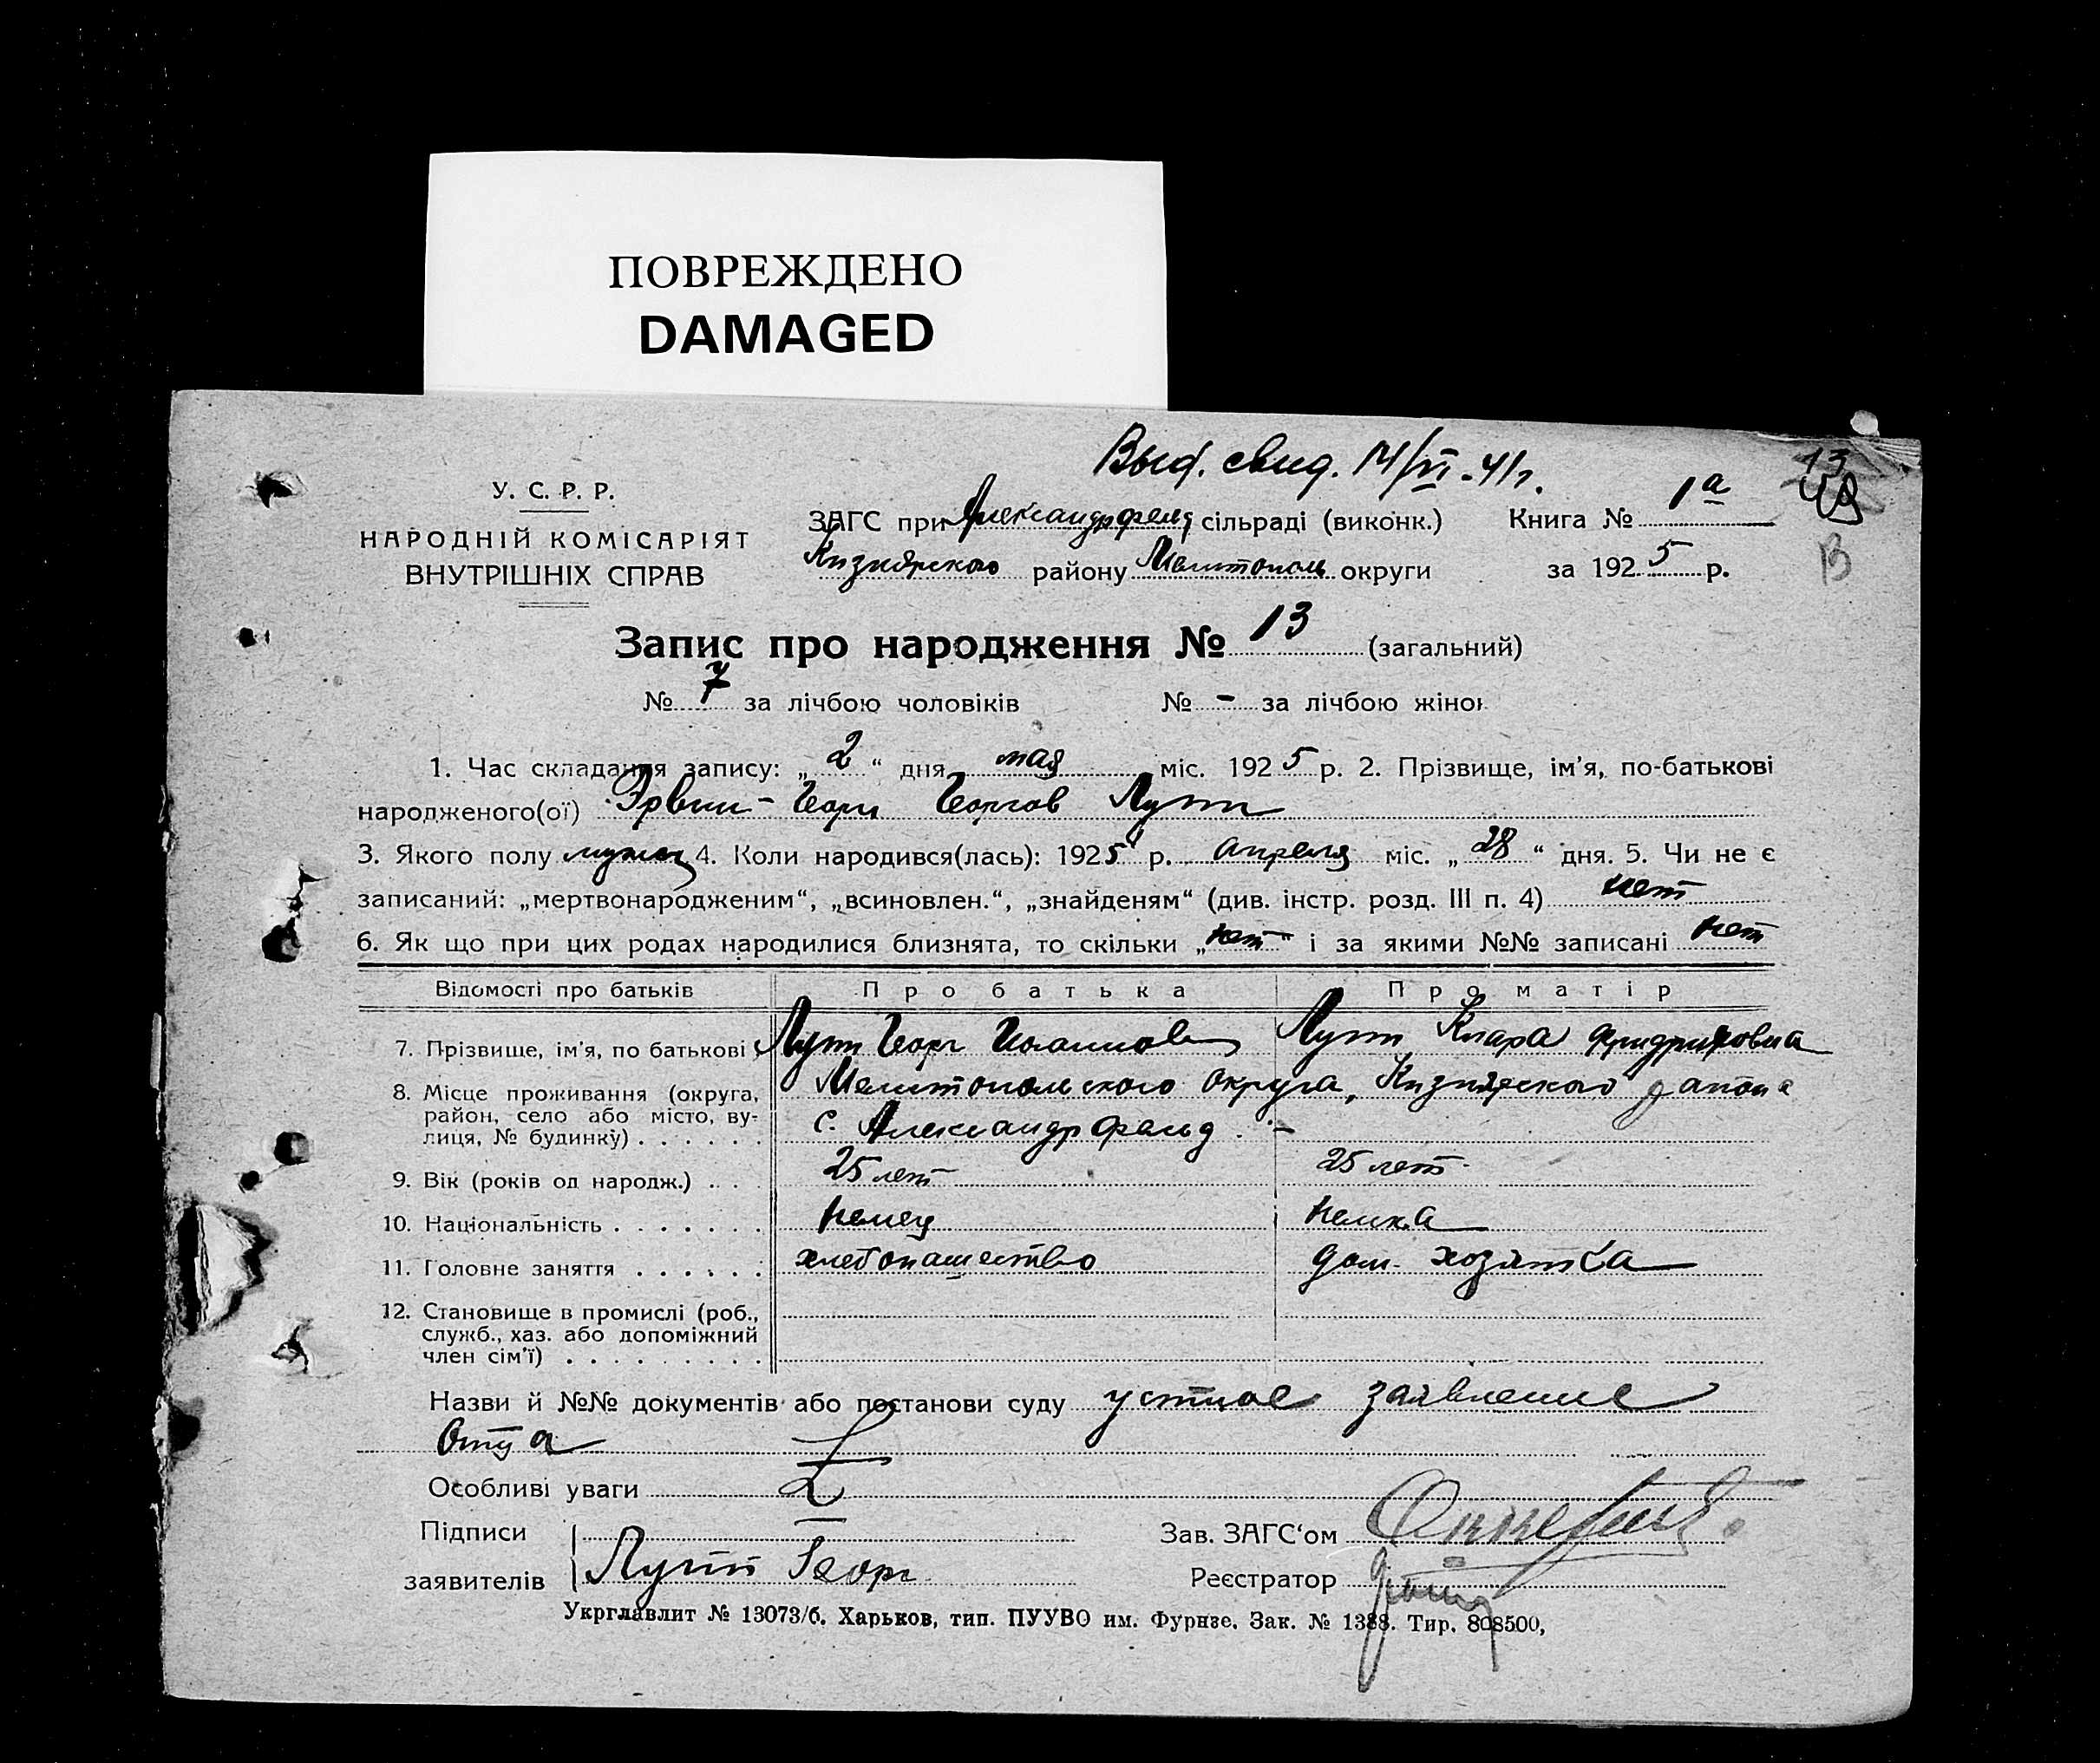 ПОВРЕЖДЕНО
DAMAGED
Выд. свид. 14/VI-41г.
13
У. С. Р. Р.
НАРОДНІЙ КОМІСАРІЯТ
ВНУТРІШНІХ СПРАВ
ЗАГС при Александрфельд сільраді (виконк.) Книга № 1а
Кизиярского району Мелитополь округи за 1925 р.
В
Запис про народження № 13 (загальний)
№ 7 за лічбою чоловіків № - за лічбою жінок
1. Час складання запису: „2“ дня мая міс. 1925 р. 2. Прізвище, ім'я, по-батькові
народженого(ої) Эрвин-Георг Георгов Лутт
3. Якого полу мужск 4. Коли народився(лась): 1925 р. Апреля міс. „28“ дня. 5. Чи не є
записаний: „мертвонародженим“, „всиновлен.“, „знайденям“ (див. інстр. розд. III п. 4) нет
6. Як що при цих родах народилися близнята, то скільки „нет“ і за якими №№ записані нет
Відомості про батьків Про батька Про матір
7. Прізвище, ім'я, по батькові Лутт Георг Иоаннов Лутт Клара Фридриховна
8. Місце проживання (округа, район, село або місто, вулиця, № будинку) . . . . . . Мелитопольского округа, Кизиярского района
с. Александрфельд. -
9. Вік (років од народж.) . . . 25 лет 25 лет.
10. Національність . . . . . . . немец немка
11. Головне заняття . . . . . . хлебопашество дом. хозяйка
12. Становище в промислі (роб.,
служб., хаз. або допоміжний
член сім'ї) . . . . . . . . .
Назви й №№ документів або постанови суду устное заявление
Отца
Особливі уваги
Підписи Зав. ЗАГС'ом
заявителів Лутт Георг Реєстратор
Укрглавлит № 13073/б. Харьков, тип. ПУУВО им. Фурнзе. Зак. № 1388. Тир. 808500,